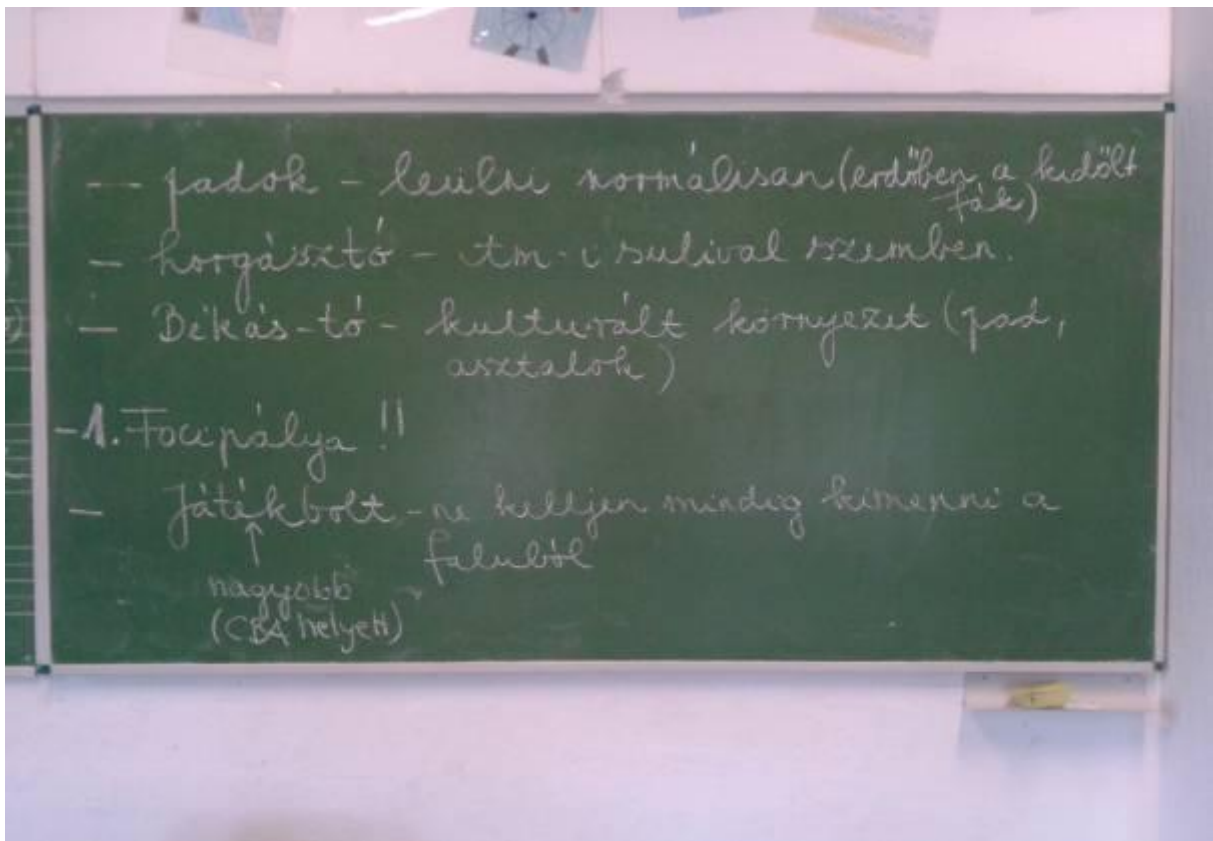 — padok – leülni normálisan (erdőben a kidőlt
fák)
— horgásztó – tm-i sulival szemben.
— Békás-tó – kulturált környezet (pad,
asztalok)
-1. Focipálya !!
— Játékbolt – ne kelljen mindig kimenni a
faluból
↑
nagyobb
(CBA helyett)